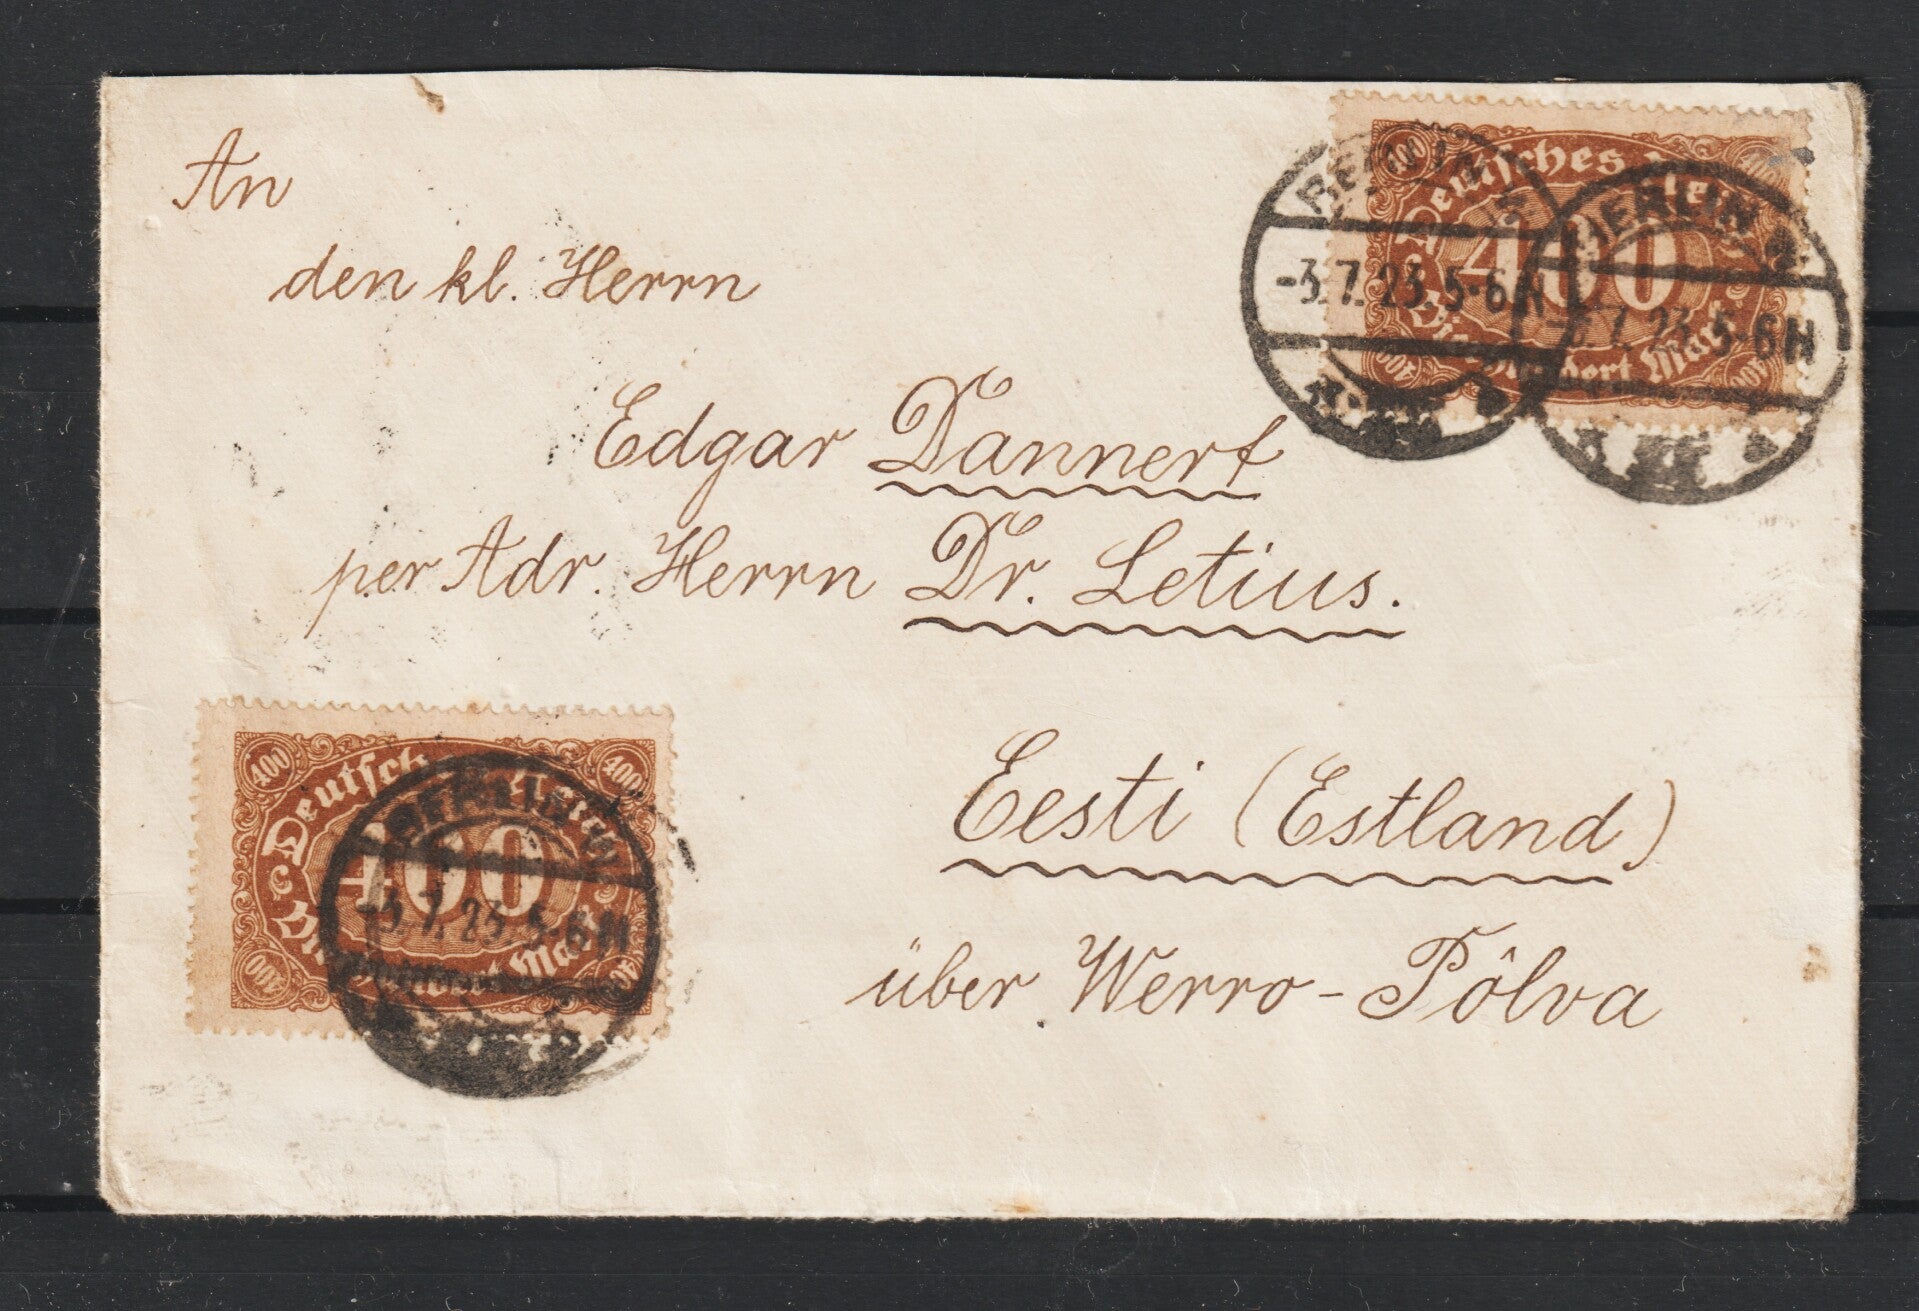 An
den kl. Herrn
Edgar Dannert
per Adr. Herrn Dr. Letius.
Eesti (Estland)
über Werro - Põlva
400 400
Deutsches Reich
400
Vierhundert Mark
400 400
BERLIN W.
-3.7.23.5-6N
BERLIN W.
-3.7.23.5-6N
400 400
Deutsches Reich
400
Vierhundert Mark
400 400
BERLIN W.
-3.7.23.5-6N